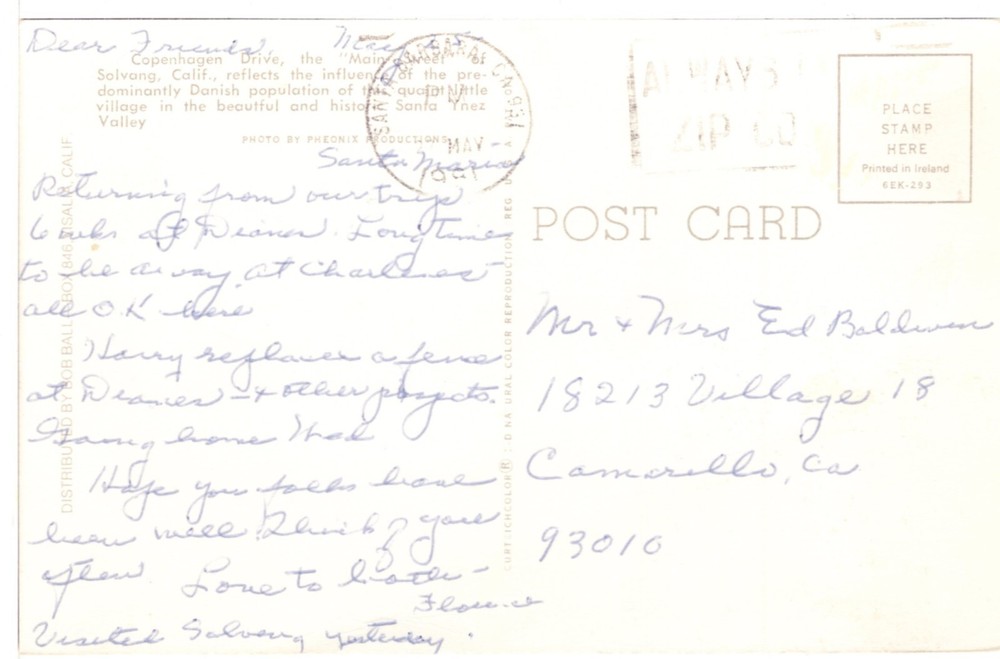 Dear Friends, May
Copenhagen Drive, the "Main Street" of
Solvang, Calif., reflects the influence of the pre-
dominantly Danish population of the quaint little
village in the beautful and historic Santa Ynez
Valley
PHOTO BY PHEONIX PRODUCTIONS
Santa Maria
Returning from our trip
6 wks at Dianes. Long time
to be away. at Charlenes
all OK here
Harry replaced a fence
at Dianes - & other projects.
Going home Wed
Hope you folks have
been well. Think of you
often. Love to both -
Florence
Visited Solvang yesterday.
DISTRIBUTED BY BOB BALL BOX 846 VISALIA, CALIF
SANTA BARBARA, CA
PM
MAY
ALWAYS
ZIP CO
PLACE
STAMP
HERE
Printed in Ireland
6EK-293
POST CARD
Mr & Mrs Ed Baldwin
18213 Village 18
Camarillo, Ca
93010